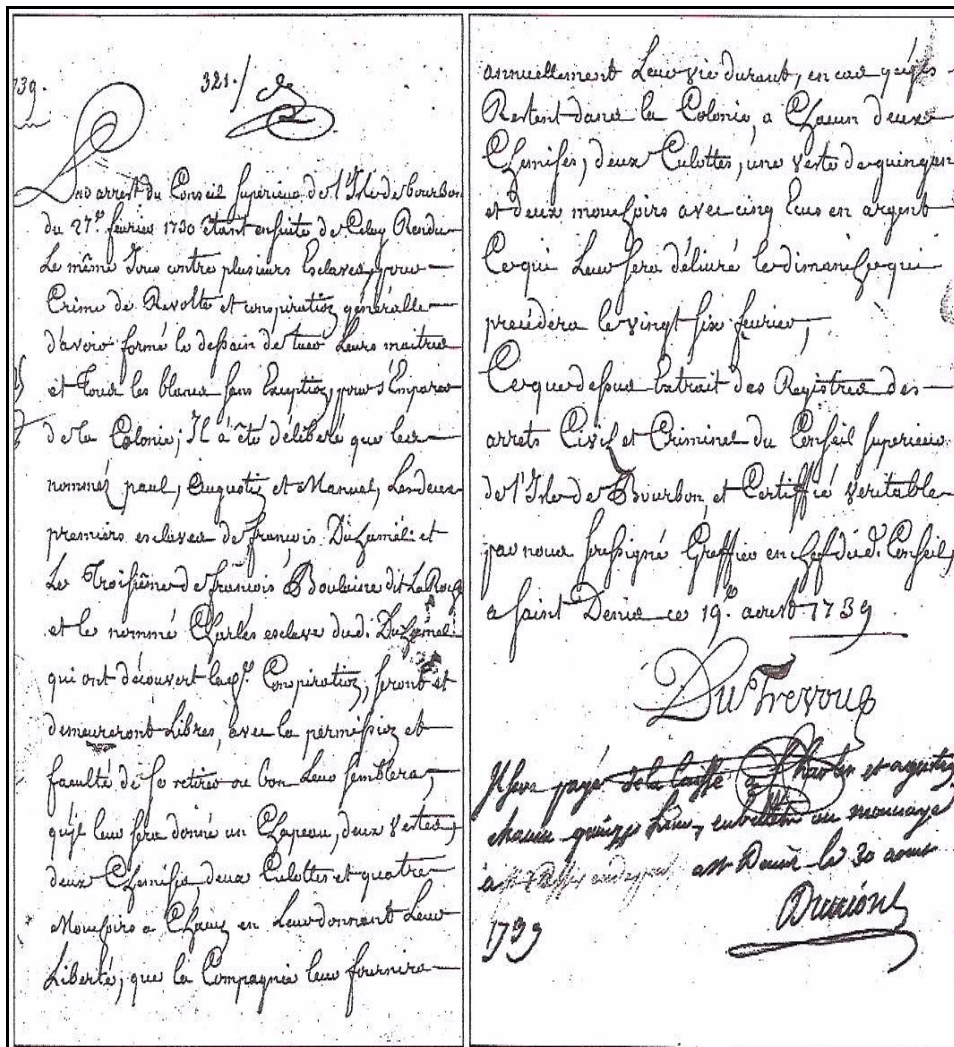 739.
321./
Par arrest du Conseil superieur de l'Isle de bourbon
du 27e. fevrier 1730 étant ensuite de Celuy Rendu
Le même Jour contre plusieurs Esclaves, pour
Crime de Revolte et conspiration généralle
d'avoir formé le dessain de tuer Leurs maitres
et Tous les blancs sans Exception, pour s'Emparer
de la Colonie; Il à été déliberé que les
nommez paul, Augustin et Manuel, Les deux
premiers esclaves de francois Duhamel et
Le Troisième de francois Boulaine dit La Roche
et le nommé Charles esclave dud. Duhamel
qui ont découvert lad. Conspiration, seront et
demeureront Libres, avec la permission et
faculté de se retirer ou bon Leur semblera,
qu'il leur sera donné un Chapeau, deux vestes,
deux Chemises deux Culottes et quatre
Mouchoirs a Chacun en Leur donnant Leur
Liberté, que la Compagnie leur fournira
annuellement Leur vie durant, en cas qu'ils
Restent dans la Colonie, a Chacun deux
Chemises, deux Culottes, une veste de guingan
et deux mouchoirs avec cinq Ecus en argent
Ce qui Leur sera délivré le dimanche qui
precédera le vingt six fevrier,
Ce que dessus Extrait des Registres des
arrets Civil et Criminel du Conseil superieur
de l'Isle de Bourbon, et Certiffié veritable
par nous soussigné Greffier en chef dud. Conseil,
a Saint Denis ce 19e. aoust 1739
DuTrevou
Il sera payé de la caisse a Charles et agustin
chacun quinze Livres, en monnaye
a St Denis le 30 aout
1739